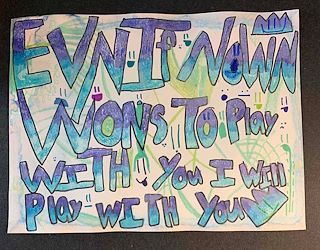 EVN IF NOWN
WONS TO Play
WITH You I Will
Play WITH YOU